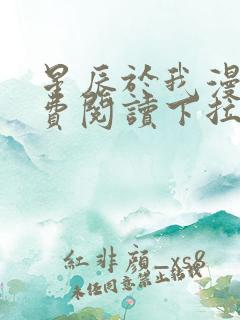 星辰於我漫
費閱讀下拉
紅非顏_xs8
未任同意禁止轉載